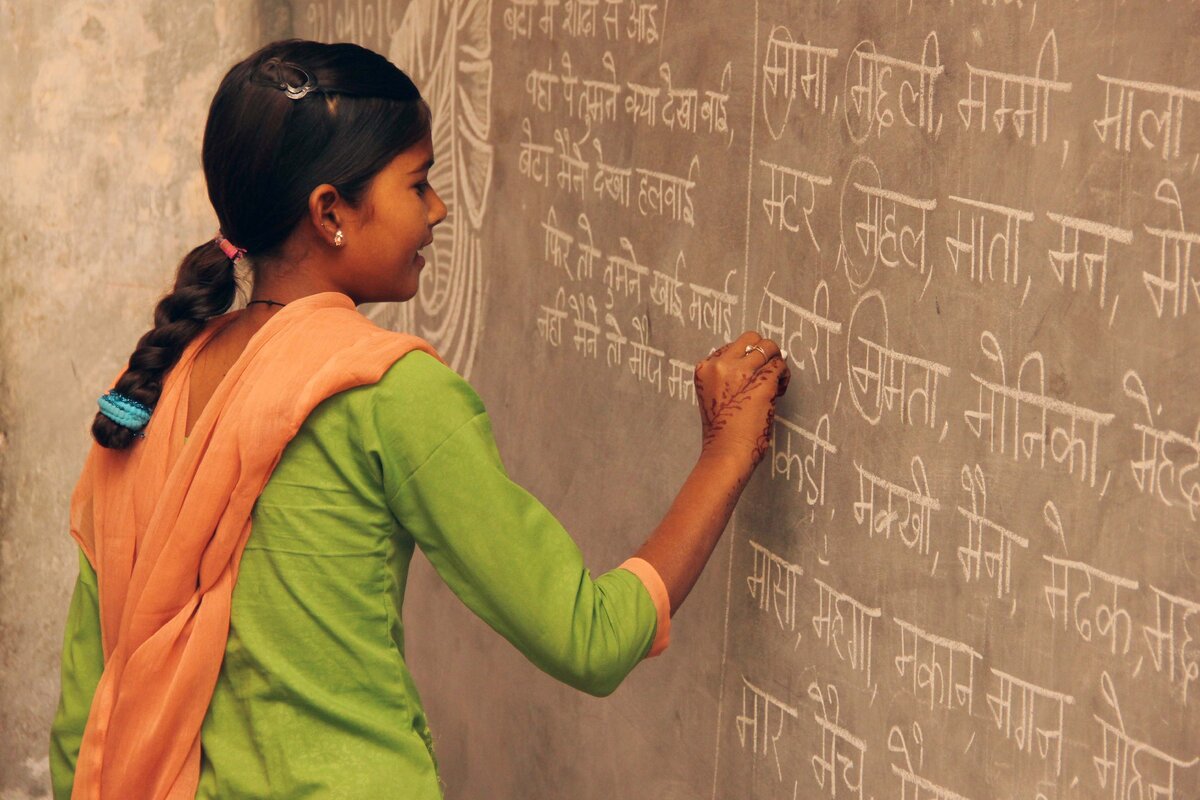 बेटा मैं शादी से आई
वहां पे तुमने क्या देखा बाई,
बेटा मैंने देखा हलवाई
फिर तो तुमने खाई मलाई
नहीं मैंने तो मौज
मामा, मछली, मम्मी, माला
मटर, महल, माता, मन,
मटरी, ममता, मोनिका,
मक्खी, मैना, मेढक,
मासा, महंगा, मकान, मगन,
मार, मैच,